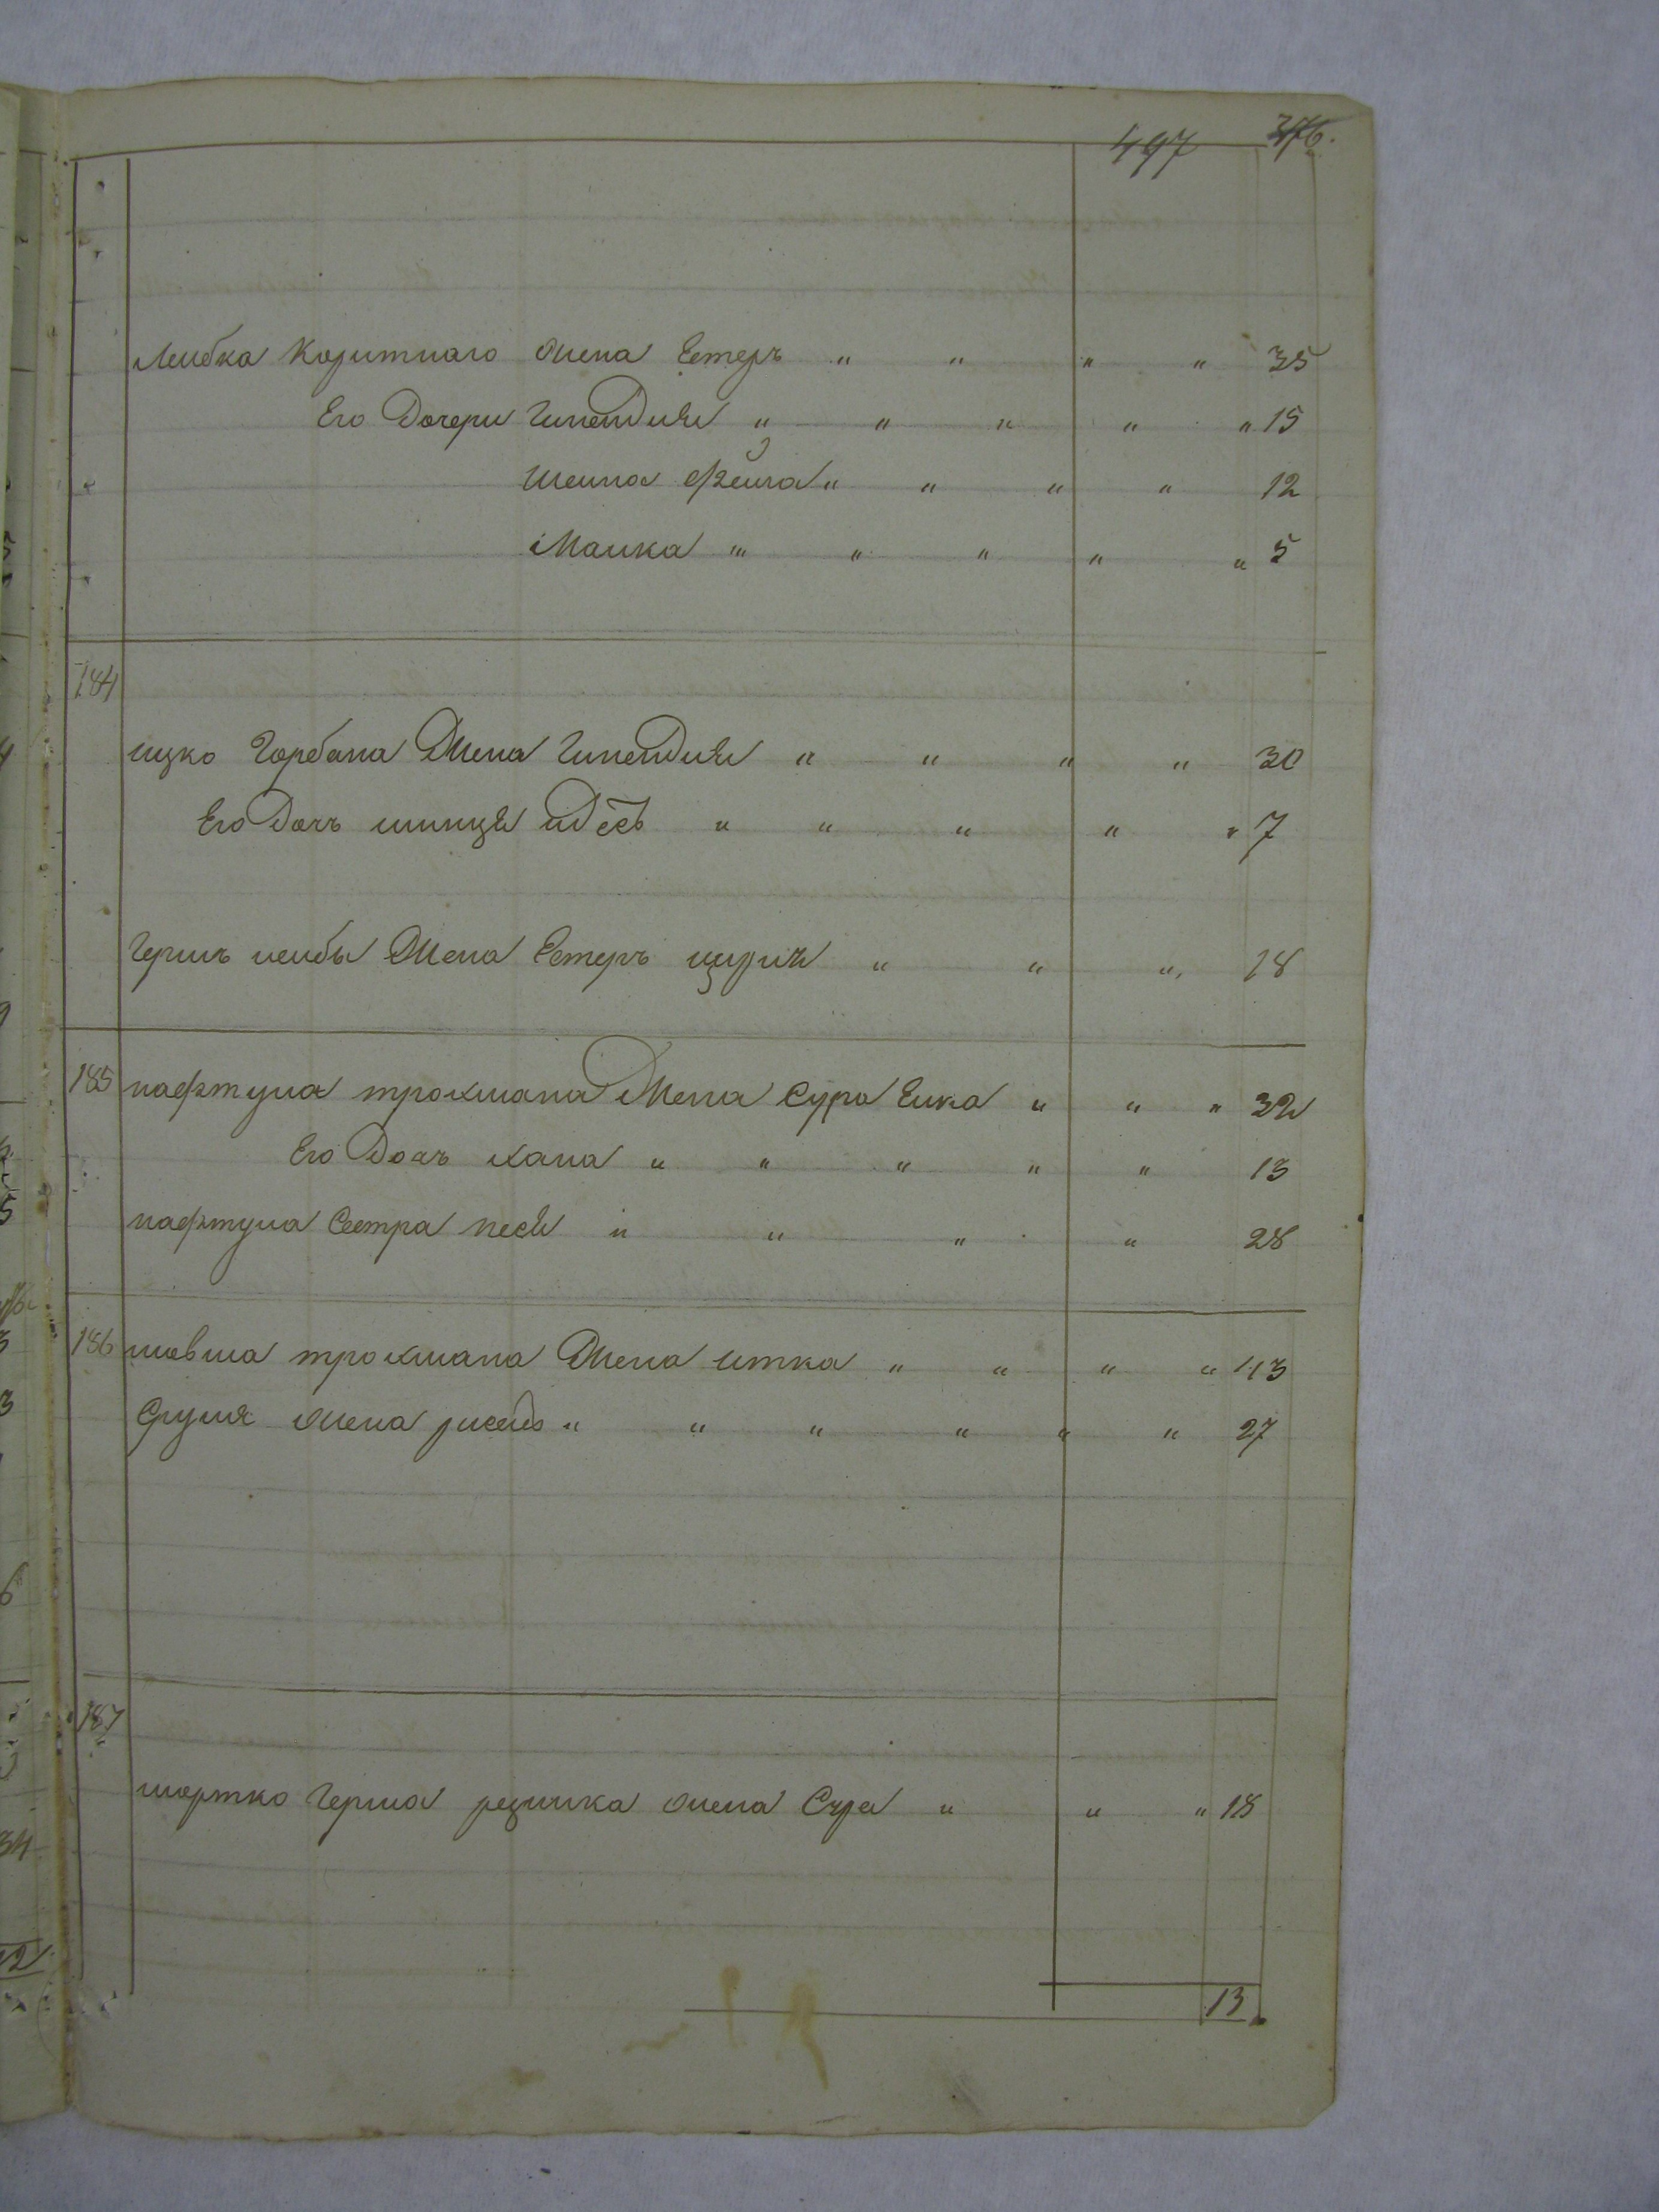 497 376.
Лейбка Коритнаго жена Естеръ " " " " 35
Его Дочери Гинендиля " " " " " 15
Шейна Фейга " " " " 12
Малка " " " " " 5
184
ицко Горбана Жена Гинендиля " " " " 30
Его Дочь " " " " " 7
Гершъ лейбы Жена Естеръ " " " 18
185 нафтула трохмана Жена Сура Ейка " " " 32
Его Дочь хана " " " " " 13
нафтула Сестра песя " " " " 28
186 шевша трохмана Жена итка " " " " 43
Сруля жена " " " " " " 27
187
мортко Герша резника жена Сура " " " 18
13